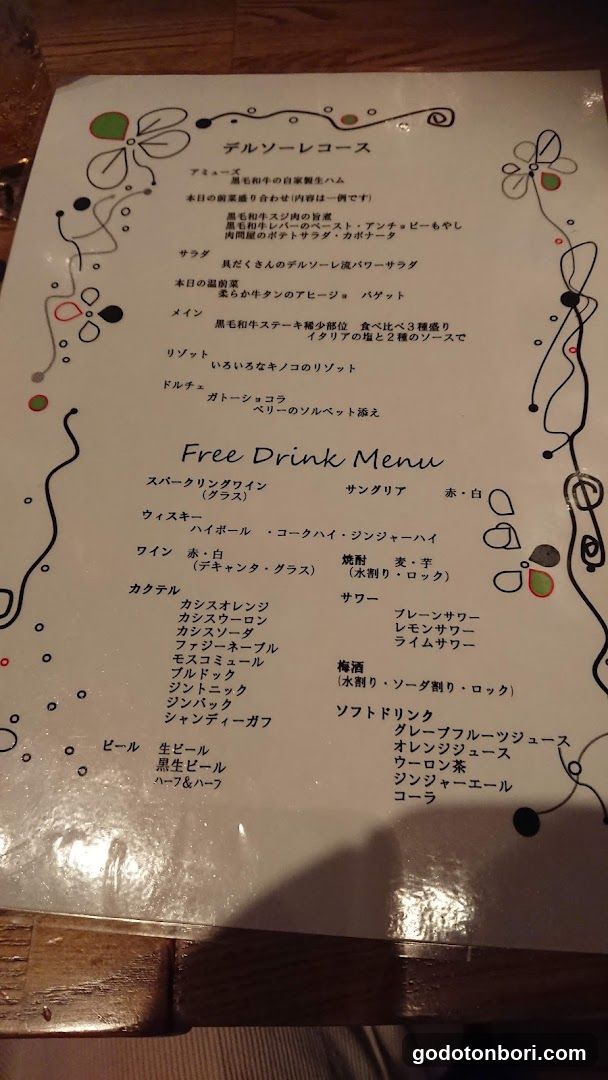 デルソーレコース
アミューズ
黒毛和牛の自家製生ハム
本日の前菜盛り合わせ(内容は一例です)
黒毛和牛スジ肉の旨煮
黒毛和牛レバーのペースト・アンチョビーもやし
肉問屋のポテトサラダ・カポナータ
サラダ
具だくさんのデルソーレ流パワーサラダ
本日の温前菜
柔らか牛タンのアヒージョ　バゲット
メイン
黒毛和牛ステーキ稀少部位　食べ比べ３種盛り
イタリアの塩と２種のソースで
リゾット
いろいろなキノコのリゾット
ドルチェ
ガトーショコラ
ベリーのソルベット添え
Free Drink Menu
スパークリングワイン
(グラス)
サングリア　赤・白
ウィスキー
ハイボール　・コークハイ・ジンジャーハイ
ワイン　赤・白
(デキャンタ・グラス)
焼酎　麦・芋
(水割り・ロック)
カクテル
カシスオレンジ
カシスウーロン
カシスソーダ
ファジーネーブル
モスコミュール
ブルドック
ジントニック
ジンバック
シャンディーガフ
サワー
プレーンサワー
レモンサワー
ライムサワー
梅酒
(水割り・ソーダ割り・ロック)
ソフトドリンク
グレープフルーツジュース
オレンジジュース
ウーロン茶
ジンジャーエール
コーラ
ビール　生ビール
黒生ビール
ハーフ&ハーフ
godotonbori.com